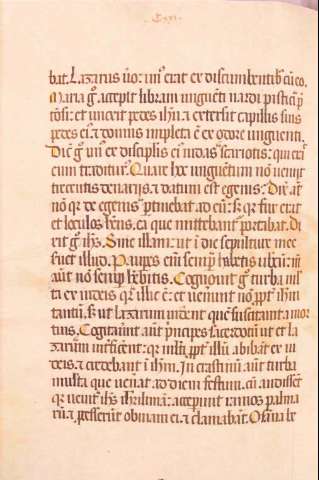 bat. Lazarus ũo: unꝰ erat ex discumbentibꝰ cũ eo.
Maria gͦ. accepit libram ungueti nardi pistici p̃
tiosi: et unxerit pedes ihũ. ⁊ extersit capillis suis
pedes eiꝰ. ⁊ domus impleta ẽ ex odore unguenti.
Dic̃ gͦ unꝰ ex discipl'is eiꝰ iudas scariotis: qui erat
eum traditurꝰ. Quare hoc unguentum nõ uenijt
trecentis denarijs. ⁊ datum est egenis: Dix̃ aũt
nõ qꝛ de egenis ꝑtinebat ad eũ: sꝫ qꝛ fur erat
et loculos hñs. ea que mittebantꝰ portabat. Di
xit gͦ ihs̃. Sine illam: ut ĩ die sepulture mee
seruet illud. Pauꝑes eñi semꝑ habetis uobiscũ: m̃
aũt nõ semꝑ hẽbitis. Cognouit gͦ turba ml
ta ex iudeis qꝛ illic ẽ: et uenunt nõ ꝓpt̃ ihm̃
tantũ. sꝫ ut lazarum uidẽent quẽ suscitauit a mor
tuis. Cogitauẽnt aũt p̃ncipes sacerdotũ ut et la
zarum int̃ficẽent: qꝛ multi ꝓpt̃ illũ abibãt ex iu
deis. ⁊ credebant ĩ ihm̃. In crastinũ aũt turba
multa que ueñat ad diem festum. cũ audissẽt
qꝛ uenit ihs̃ ih'rl'imã: acceperunt ramos palma
rũ. ⁊ ꝓcesserũt obuiam ei. ⁊ clamabãt. Osãna be